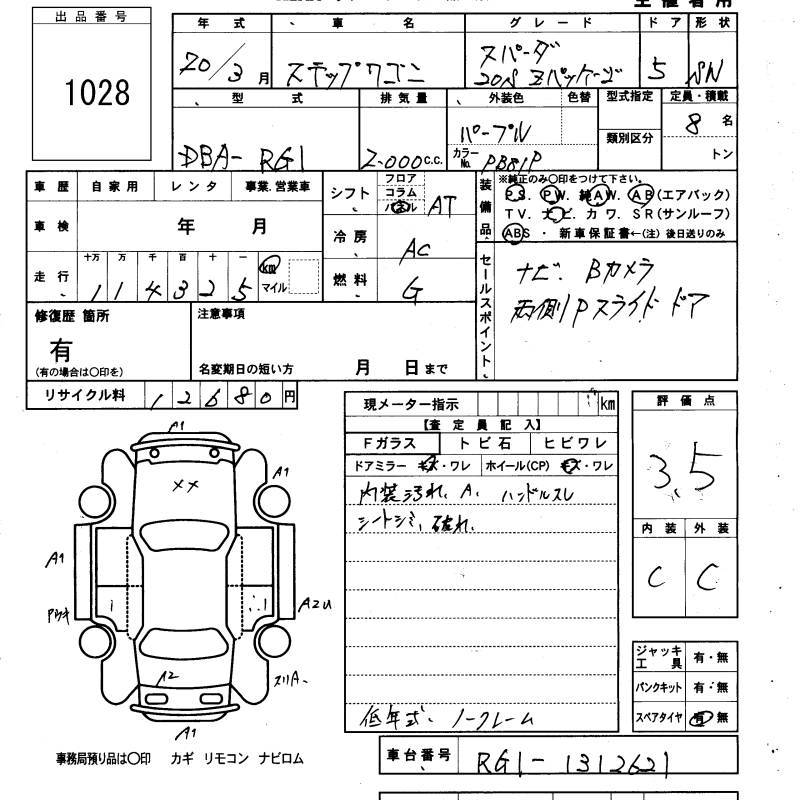 出品番号
1028
年式 車名 グレード ドア 形状
20/3月 ステップワゴン スパーダ 20S Zパッケージ 5 SN
型式 排気量 外装色 色替 型式指定 定員・積載
類別区分
DBA-RG1 2.000c.c. パープル 8名
カラーNo. PB81P トン
車歴 自家用 レンタ 事業.営業車
車検 年 月
走行 十万 万 千 百 十 一
114325 km マイル
シフト フロア コラム パネル AT
冷房 AC
燃料 G
装備品 ※純正のみ〇印をつけて下さい。
P.S. P.W. 純A.W. A B (エアバック)
T V. ナ ビ. カ ワ. S R (サンルーフ)
ABS ・ 新車保証書←(注) 後日送りのみ
セールスポイント
ナビ. Bカメラ
両側Pスライドドア
修復歴 箇所
有
(有の場合は〇印を)
注意事項
名変期日の短い方 月 日まで
リサイクル料 12680円
現メーター指示 km
【査定員記入】
Fガラス トビ石 ヒビワレ
ドアミラー キズ・ワレ ホイール(CP) キズ・ワレ
内装汚れ. A. ハンドルスレ
シートシミ、破れ.
低年式. ノークレーム
評価点
3.5
内装 外装
C C
ジャッキ工具 有・無
パンクキット 有・無
スペアタイヤ 有・無
A1
A1
××
A1
A2U
A2
A1
事務局預り品は〇印 カギ リモコン ナビロム
車台番号 RG1-1312621